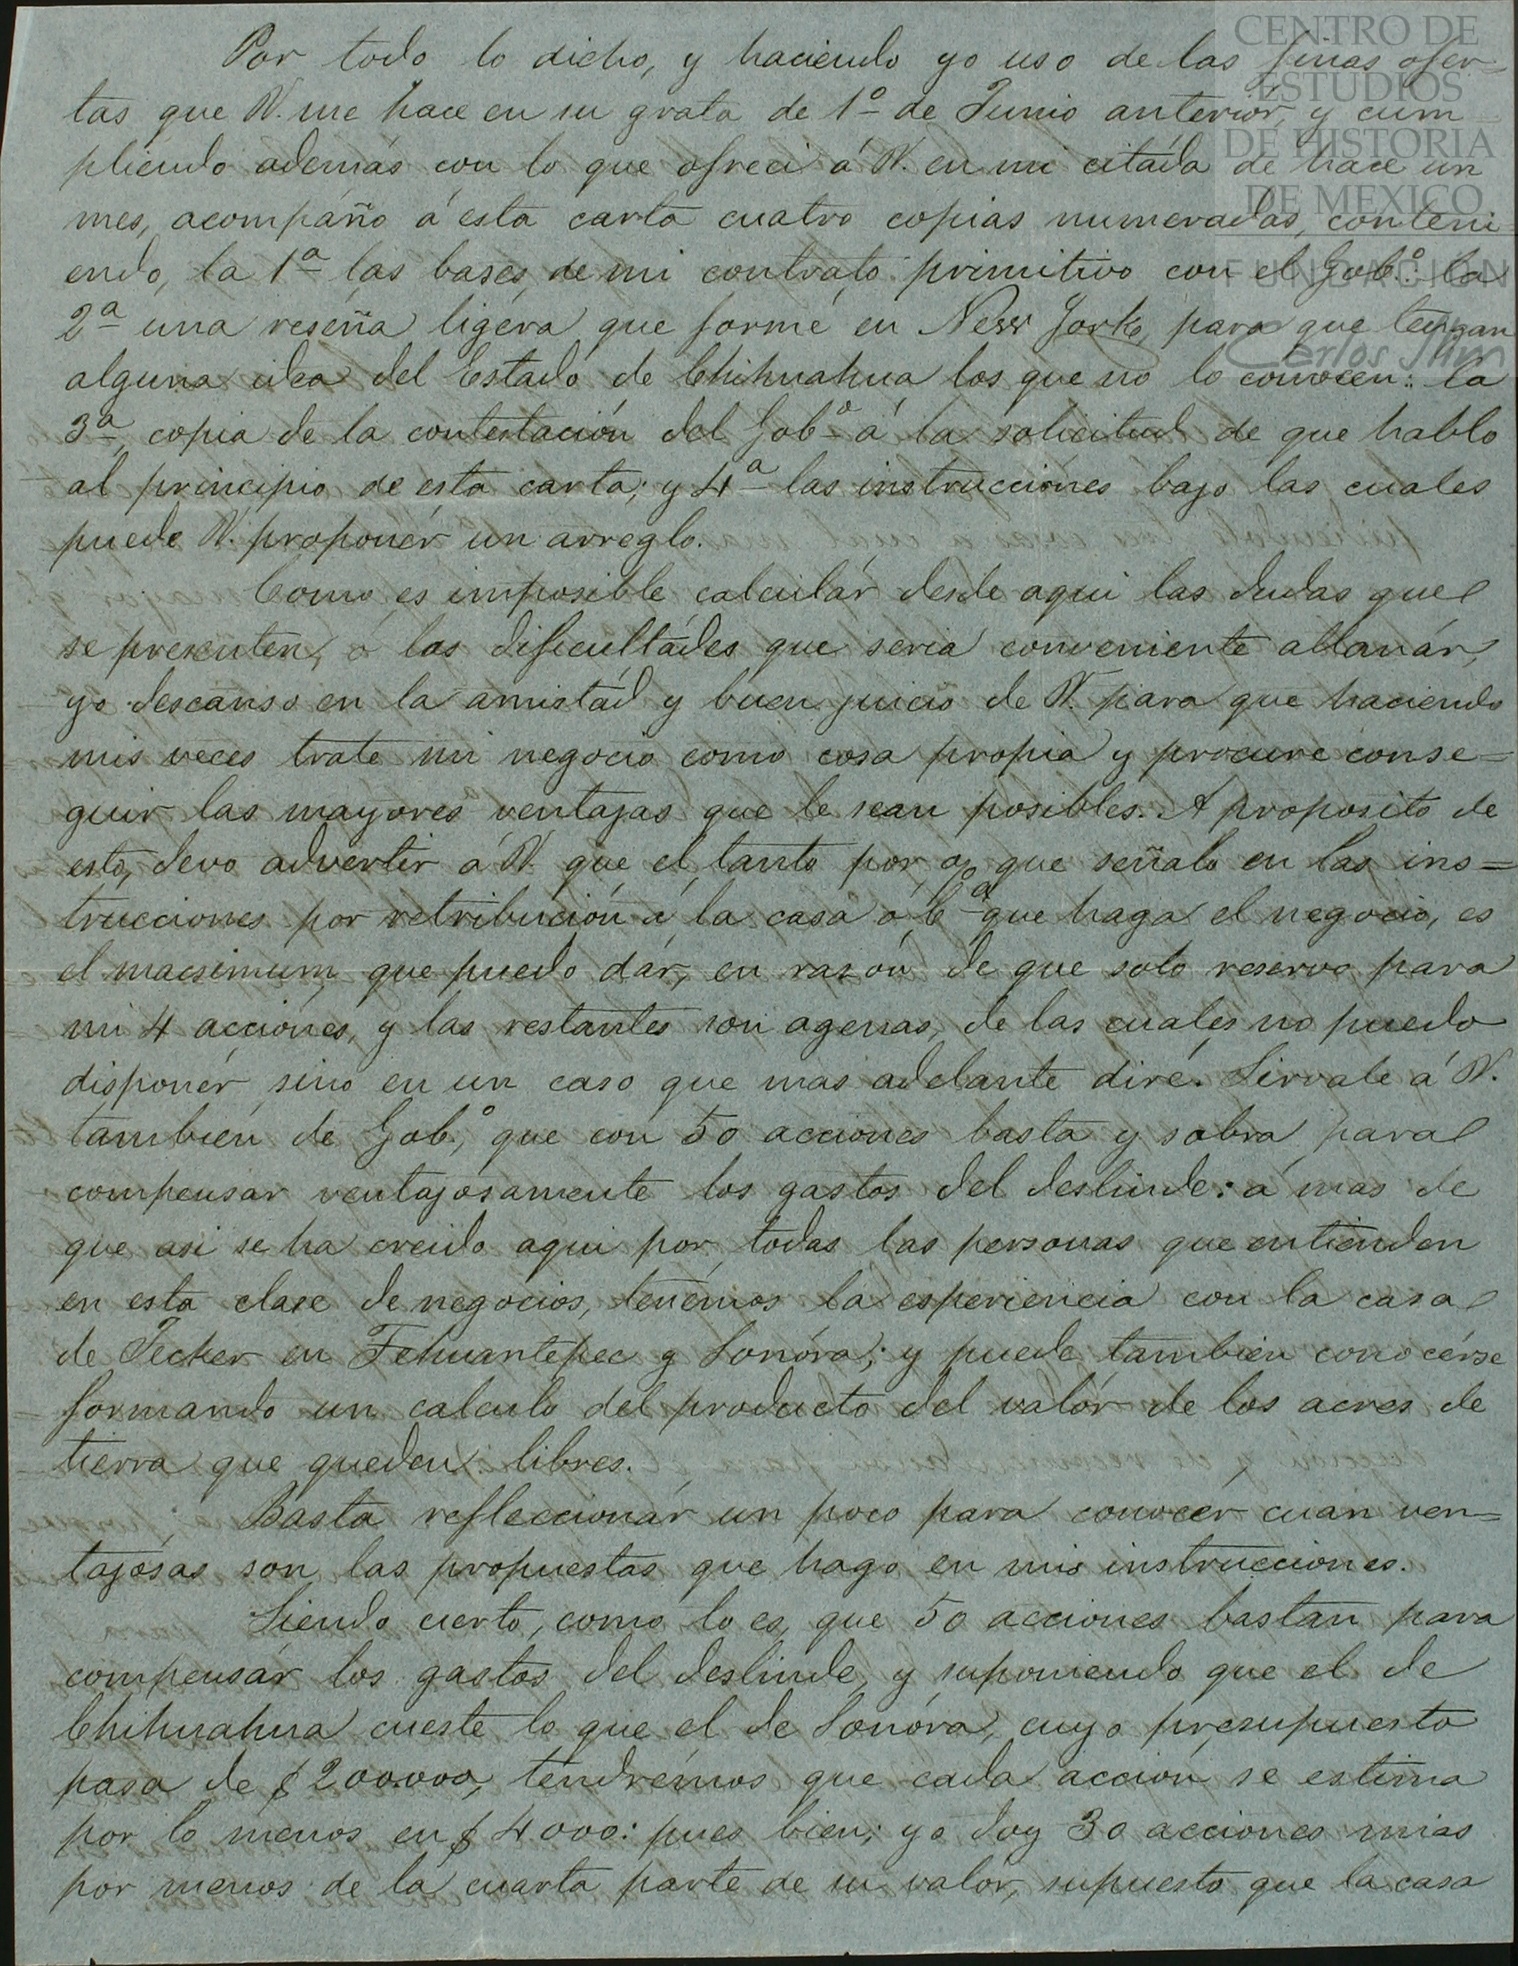 CENTRO DE
ESTUDIOS
DE HISTORIA
DE MEXICO
FUNDACION
Carlos Slim
Por todo lo dicho, y haciendo yo uso de las finas ofer-
tas que V. me hace en su grata de 1º de Junio anterior, y cum
pliendo además con lo que ofreci á V. en mi citáda de hace un
mes, acompaño á esta carta cuatro copias numeradas, conteni-
endo, la 1ª las bases de mi contrato primitivo con el Gob.º: la
2ª una reseña ligera que formé en New York, para que tengan
alguna idea del Estado de Chihuahua los que no lo conocen: la
3ª, copia de la contestación del Gobº á la solicitud de que hablo
al principio de esta carta; y 4ª las instrucciónes bajo las cuales
puede V. proponér un arreglo.
Como es imposible calculár desde aqui las dudas que
se presenten, ó las dificultádes que seria conveniente allanár,
yo descanso en la amistád y buen juicio de V. para que haciendo
mis veces trate mi negocio como cosa propia y procure conse=
guir las mayores ventajas que le sean posibles. A proposito de
esto, devo advertir á V. que el tanto por % que señalo en las ins=
trucciones por retribución á la casa ó Cª que haga el negocio, es
el macsimum que puedo dár, en razón de que solo reservo para
mi 4 acciónes, y las restantes son agenas, de las cuales no puedo
disponér sino en un caso que mas adelante diré. Sirvale á V.
tambien de Gob.º, que con 50 acciones basta y sobra para
compensar ventajosamente los gastos del deslinde: á mas de
que asi se ha creido aqui por todas las personas que entienden
en esta clase de negocios, tenémos la esperiencia con la casa
de Jecker en Tehuantepec y Sonóra; y puede tambien conocérse
formando un calculo del producto del valór de los acres de
tierra que queden libres.
Basta refleccionár un poco para conocér cuan ven=
tajósas son las propuestas que hago en mis instrucciones.
Siendo cierto, como lo es, que 50 acciones bastan para
compensár los gastos del deslinde, y suponiendo que el de
Chihuahua cueste lo que el de Sonóra, cuyo presupuesto
pasa de $200.000, tendrémos que cada acción se estima
por lo menos en $4000: pues bien; yo doy 30 acciones mias
por menos de la cuarta parte de su valór, supuesto que la casa